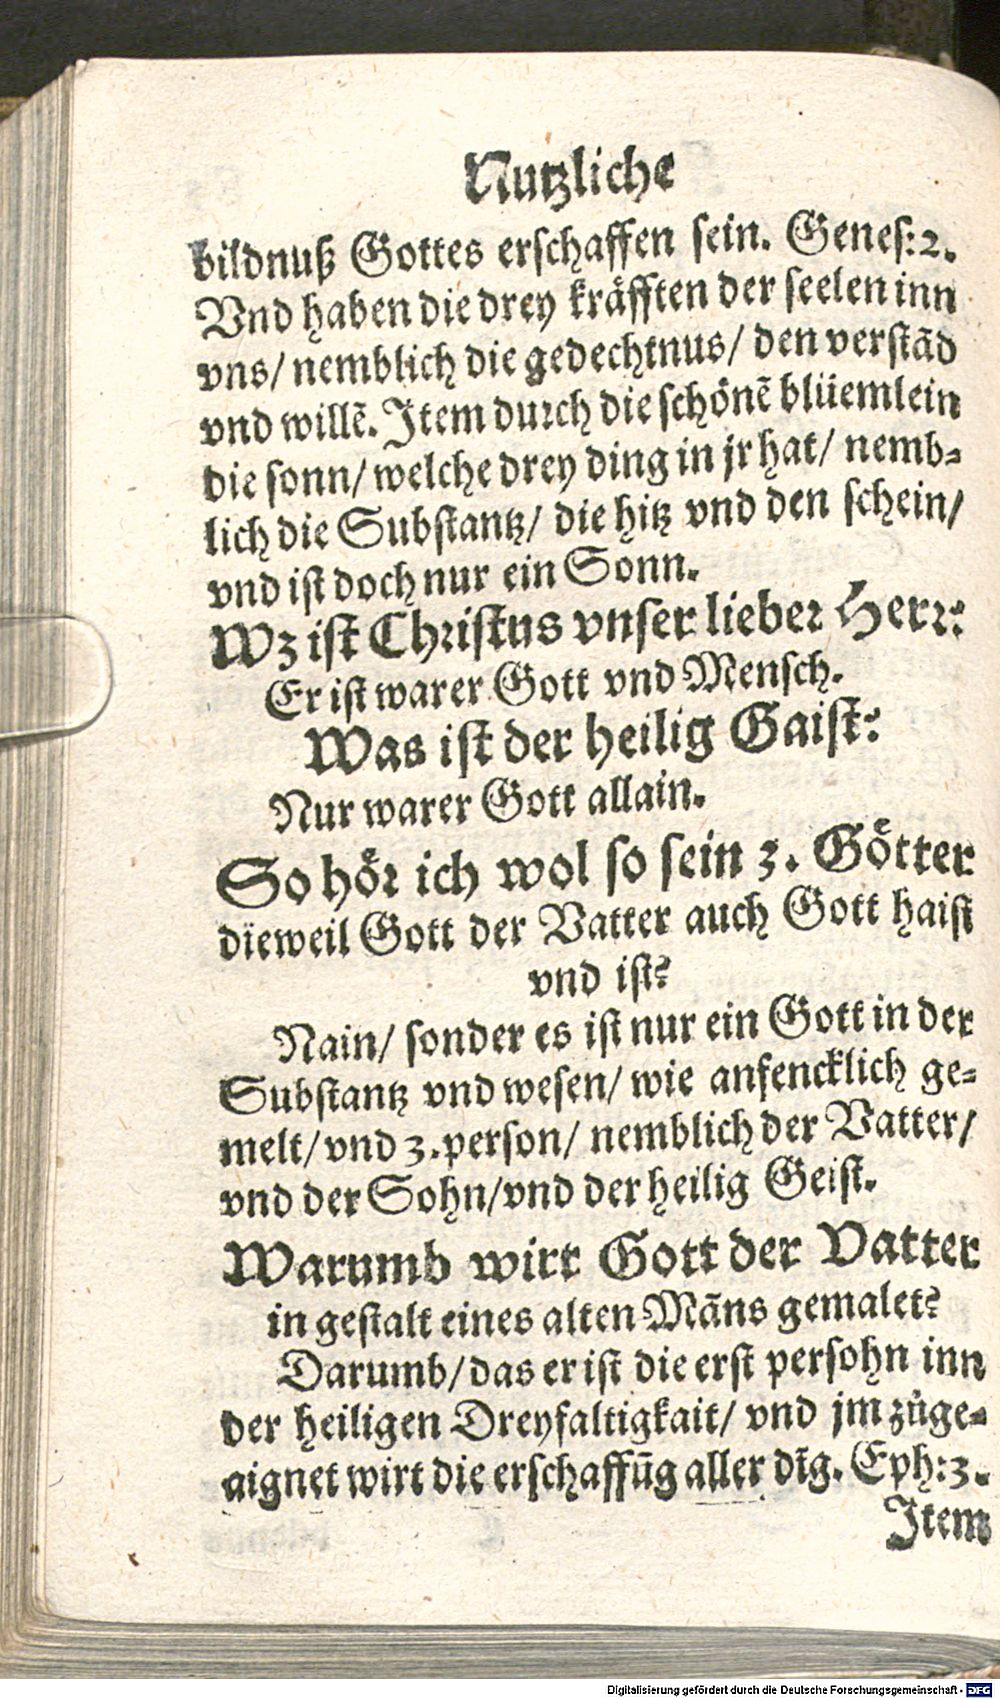 Nutzliche
bildnuß Gottes erschaffen sein. Genes: 2.
Vnd haben die drey kräfften der seelen inn
vns/ nemblich die gedechtnus/ den verstãd
vnd willẽ. Item durch die schönẽ blüemlein
die sonn/ welche drey ding in jr hat/ nemb⸗
lich die Substantz/ die hitz vnd den schein/
vnd ist doch nur ein Sonn.
Wz ist Christus vnser lieber Herr?
Er ist warer Gott vnd Mensch.
Was ist der heilig Gaist?
Nur warer Gott allain.
So hör ich wol so sein 3. Götter
dieweil Gott der Vatter auch Gott haist
vnd ist?
Nain/ sonder es ist nur ein Gott in der
Substantz vnd wesen/ wie anfencklich ge⸗
melt/ vnd 3. person/ nemblich der Vatter/
vnd der Sohn/ vnd der heilig Geist.
Warumb wirt Gott der Vatter
in gestalt eines alten Mãns gemalet?
Darumb/ das er ist die erst persohn inn
der heiligen Dreyfaltigkait/ vnd jm zůge⸗
aignet wirt die erschaffũg aller dĩg. Eph: 3.
Item
Digitalisierung gefördert durch die Deutsche Forschungsgemeinschaft - DFG